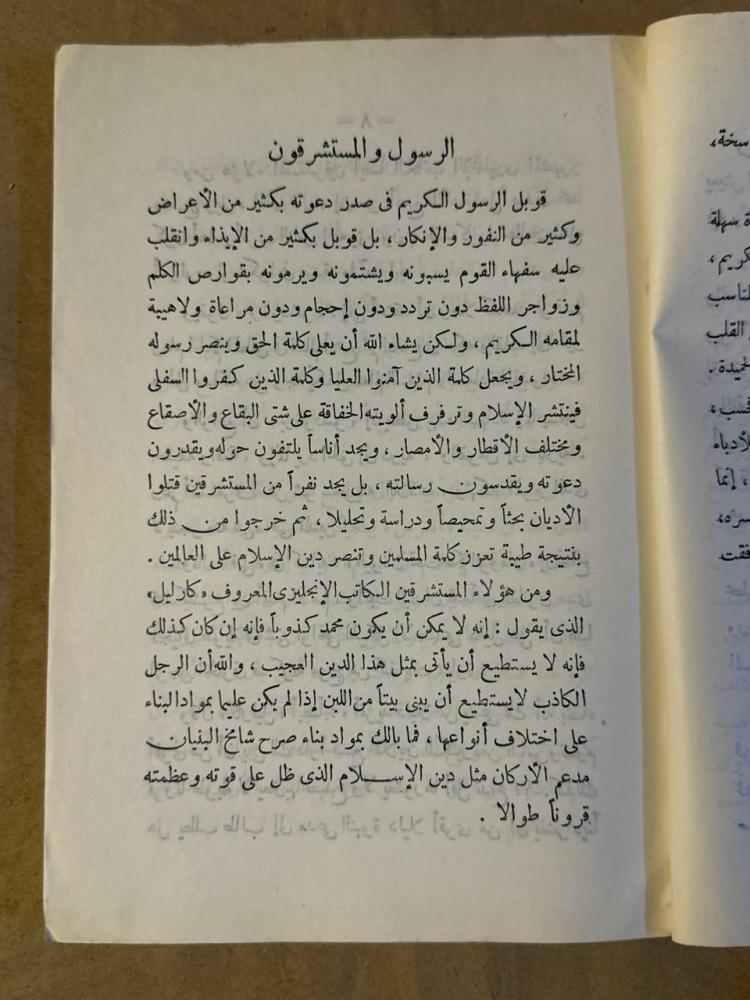 الرسول والمستشرقون
قوبل الرسول الكريم فى صدر دعوته بكثير من الأعراض
وكثير من النفور والإنكار ، بل قوبل بكثير من الإيذاء وانقلب
عليه سفهاء القوم يسبونه ويشتمونه ويرمونه بقوارص الكلم
وزواجر اللفظ دون تردد ودون إحجام ودون مراعاة ولاهيبة
لمقامه الكريم ، ولكن يشاء الله أن يعلى كلمة الحق وينصر رسوله
المختار ، ويجعل كلمة الذين آمنوا العليا وكلمة الذين كفروا السفلى
فينتشر الإسلام وترفرف ألويته الخفاقة على شتى البقاع والأصقاع
ومختلف الأقطار والأمصار ، ويجد أناساً يلتفون حوله ويقدرون
دعوته ويقدسون رسالته ، بل يجد نفراً من المستشرقين قتلوا
الأديان بحثاً وتمحيصاً ودراسة وتحليلا ، ثم خرجوا من ذلك
بنتيجة طيبة تعزز كلمة المسلمين وتنصر دين الإسلام على العالمين .
ومن هؤلاء المستشرقين الكاتب الإنجليزى المعروف «كارليل»
الذى يقول : إنه لا يمكن أن يكون محمد كذوباً فإنه إن كان كذلك
فإنه لا يستطيع أن يأتى بمثل هذا الدين العجيب ، والله أن الرجل
الكاذب لايستطيع أن يبنى بيتاً من اللبن إذا لم يكن عليما بمواد البناء
على اختلاف أنواعها ، فما بالك بمواد بناء صرح شامخ البنيان
مدعم الأركان مثل دين الإسلام الذى ظل على قوته وعظمته
قروناً طوالا .
سخة،
سهلة
كريم ،
القلب
لحميدة .
لأدباء
، إنما